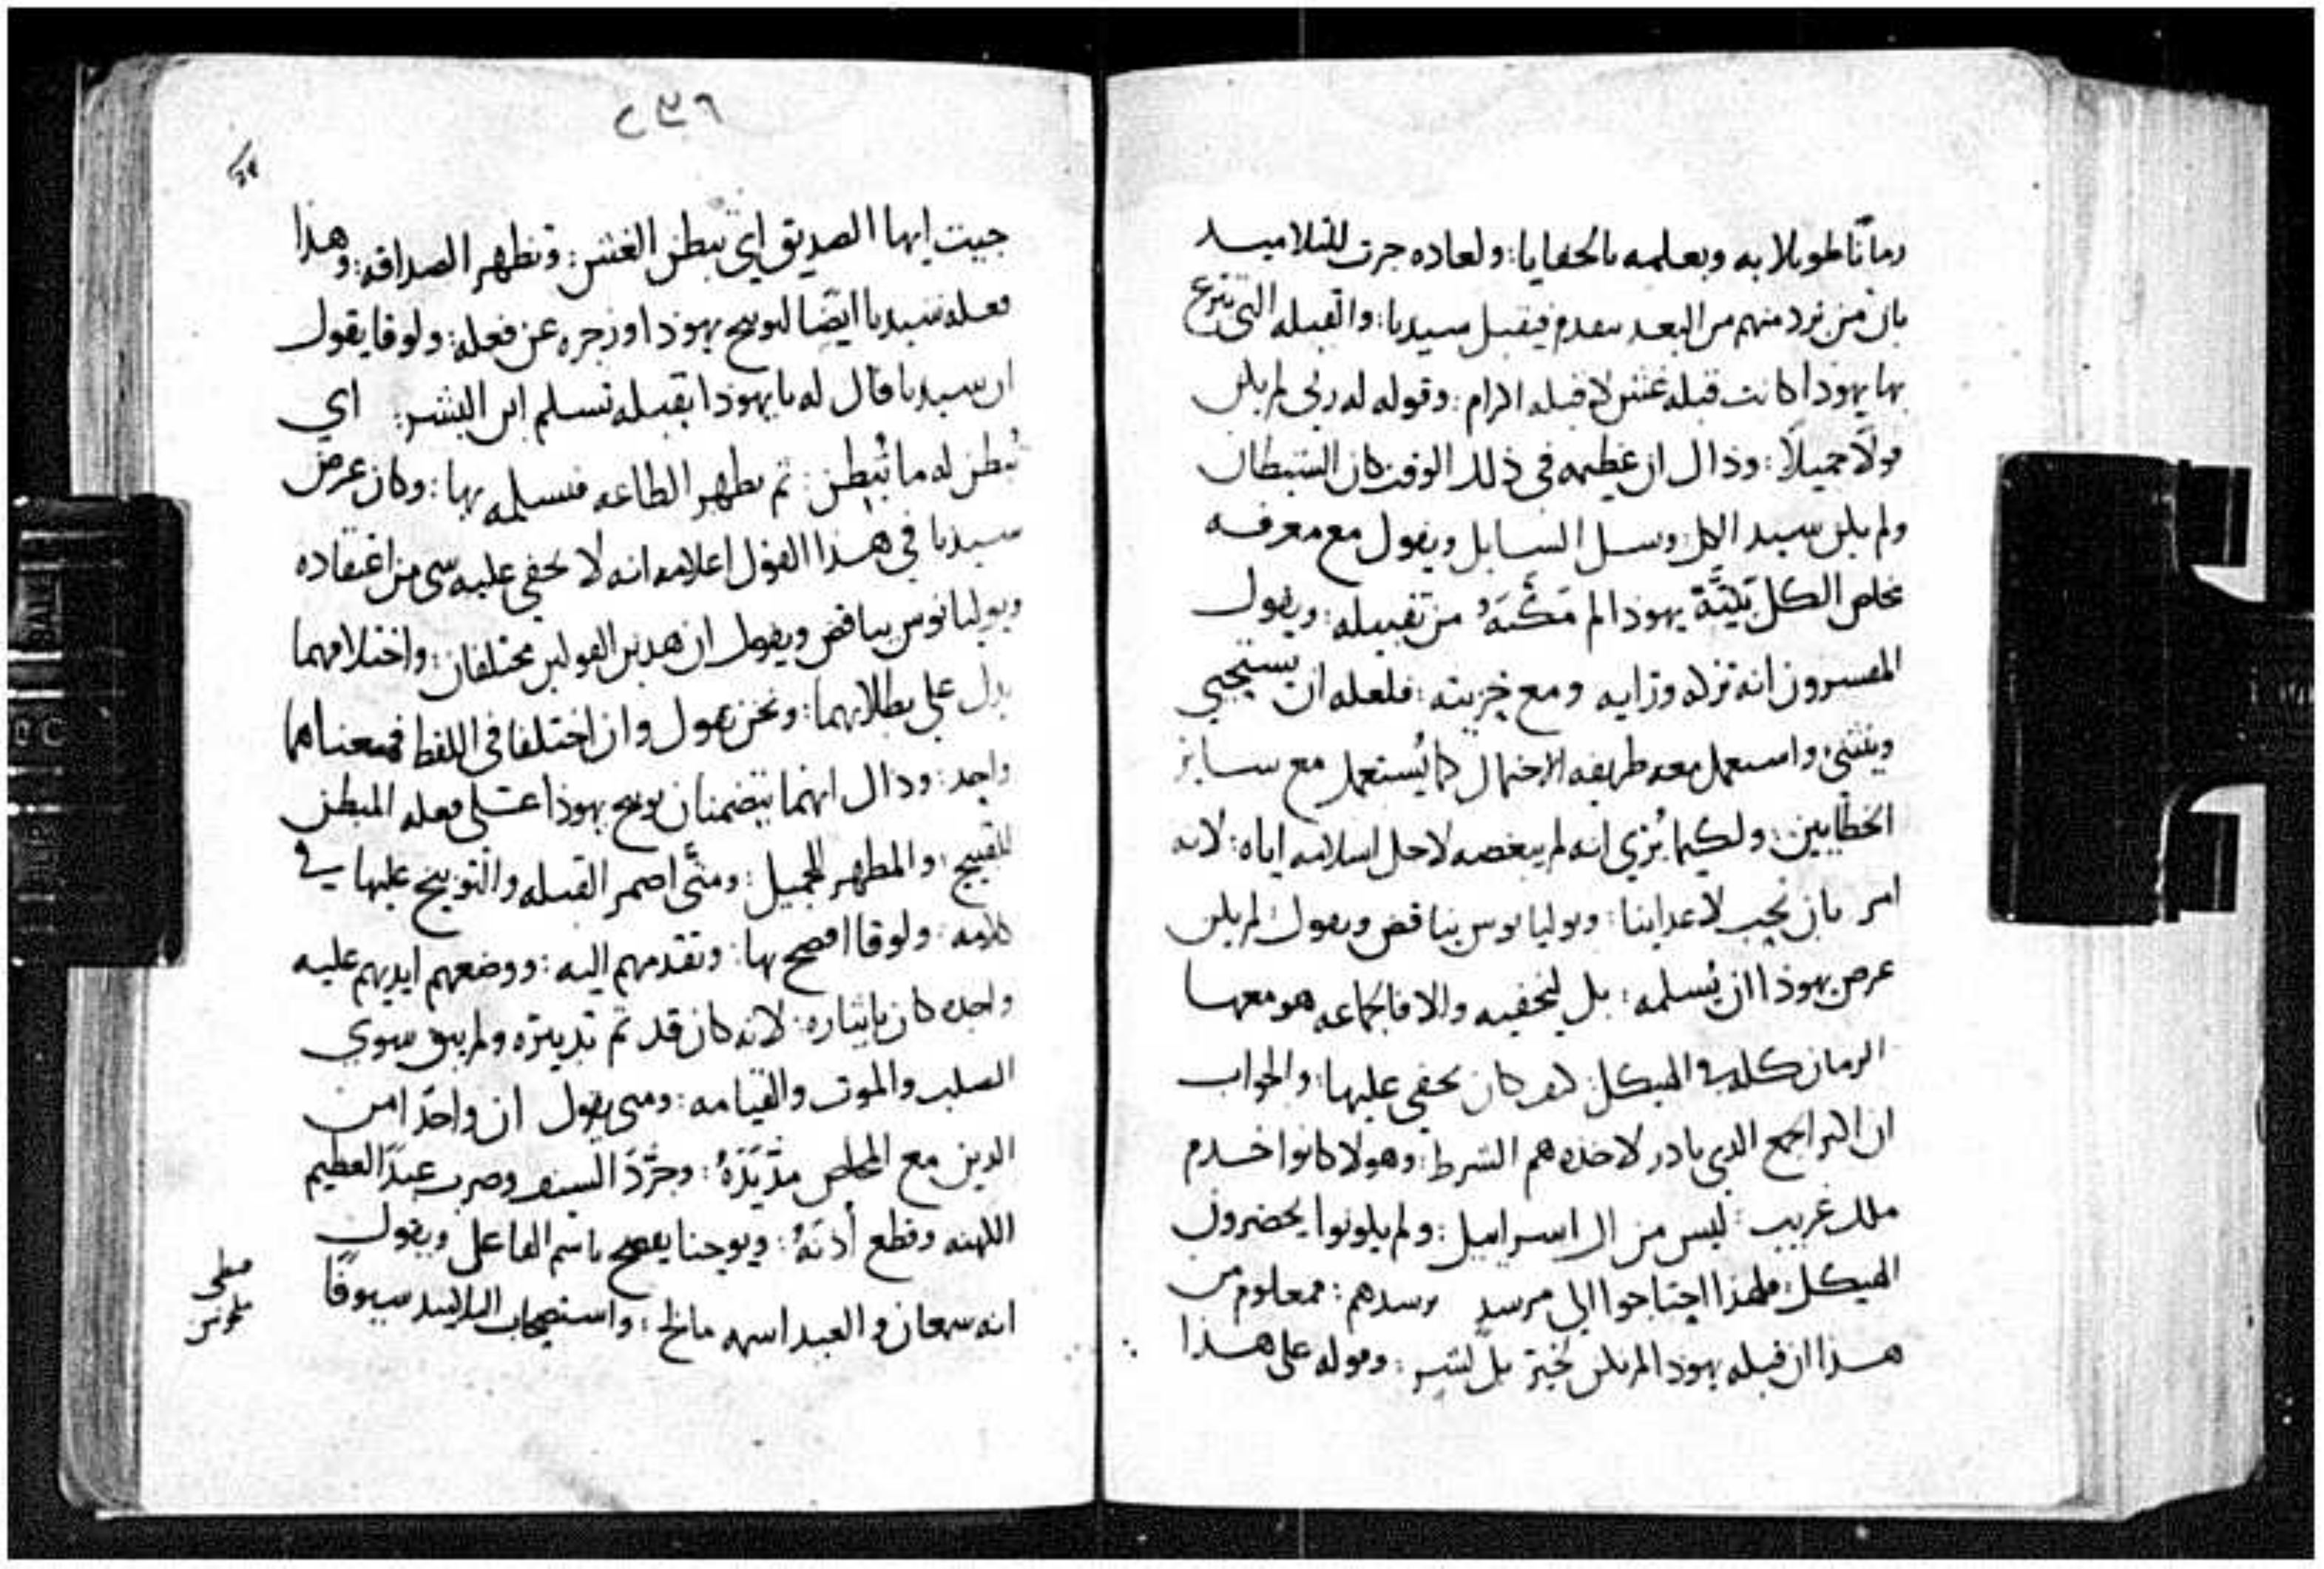 زمانًا طويلا به وبعلمه بالخفايا: ولعاده جرت للتلاميد
بان من نرد منهم من البعد يتقدم فيقبل سيدنا: والقبله التي تبرع
بها يهودا كانت قبله غش لا قبله اكرام: وقوله له ربي لم يكن
قولًا جميلًا: وذاك ان عظيمه في ذلك الوقت كان الشيطان
ولم يكن سيد الكل: وسل السايل ويقول مع معرفه
مخلص الكل بنيَّة يهودا لم مَكَّنَهُ من تقبيله: ويقول
المفسرون انه تركه ورايه ومع خزيته: فلعله ان يستحيي
وينثني واستعمل معه طريقه الاحتمال كما يُستعمل مع ساير
الخطايين: ولكيما يُري انه لم يبغضه لاجل اسلامه اياه: لانه
امر بان نحب لاعداينا: ويوليانوس يناقض ويقول: لم يكن
غرض يهودا ان يُسلمه: بل ليخفيه والا فالجماعه هو معها
الزمان كله في الهيكل: كيف كان يخفى عليها: والجواب
ان اكثر الجمع الدي بادر لاخده هم الشرط: وهولا كانوا خدم
ملك غريب: ليس من ال اسراييل: ولم يكونوا يحضرون
الهيكل: فلهذا احتاجوا الي مرشد يرشدهم: فمعلوم من
هذا ان قبله يهودا لم يكن لخير بل لشر: وقوله علي هذا
٢٣٦
جيت ايها الصديق اي تبطن الغش: وتظهر الصداقه: وهذا
فعله سيدنا ايضًا لتوبيخ يهودا وزجره عن فعله: ولوقا يقول
ان سيدنا قال له يا يهودا بقبله تسلم ابن البشر: اي
تُبطن له ما تُبطن: ثم تظهر الطاعه فتسلمه بها: وكان غرض
سيدنا في هذا القول اعلامه انه لا يخفي عليه شي من اعتقاده
ويوليانوس يناقض ويقول ان هدين القولين مختلفان: واختلافهما
يدل علي بطلانهما: ونحن نقول وان اختلفا في اللفظ فمعناهما
واحد: وذاك انهما يتضمنان توبيخ يهودا علي فعله المبطن
للقبيح: والمظهر للجميل: ومتَّى اضمر القبله والتوبيخ عليها في
كلامه: ولوقا افصح بها: وتقدمهم اليه: ووضعهم ايديهم عليه
واخده كان بايثاره: لانه كان قد تم تدبيره ولم يبق سوي
الصلب والموت والقيامه: ومتى يقول ان واحدًا من
الدين مع المخلص مدّ يَدَهُ: وجرَّدَ السيف وضرب عبدَ العظيم
الكهنه وقطع أدنَهُ: ويوحنا يفصح باسم الفاعل ويقول
انه سمعان والعبد اسمه مالخ: واستصحاب التلاميد سيوفًا